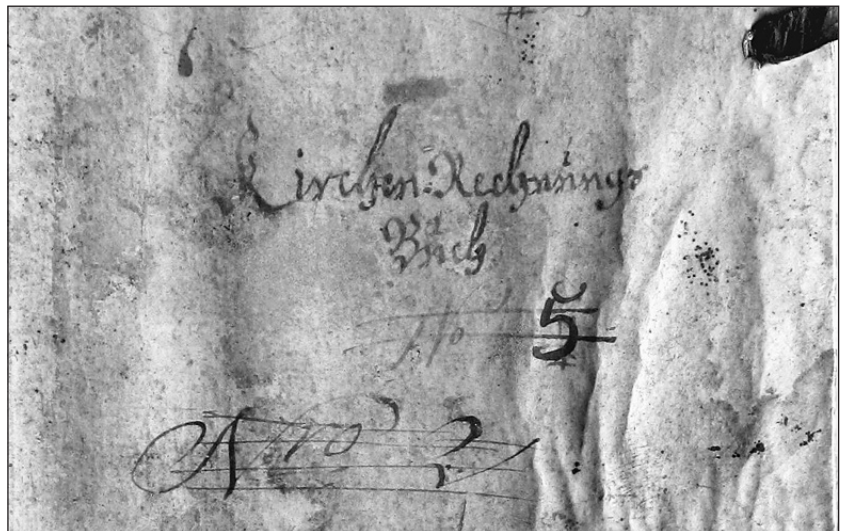 Kirchen-Rechnungs
Buch
No 5
Nro 2